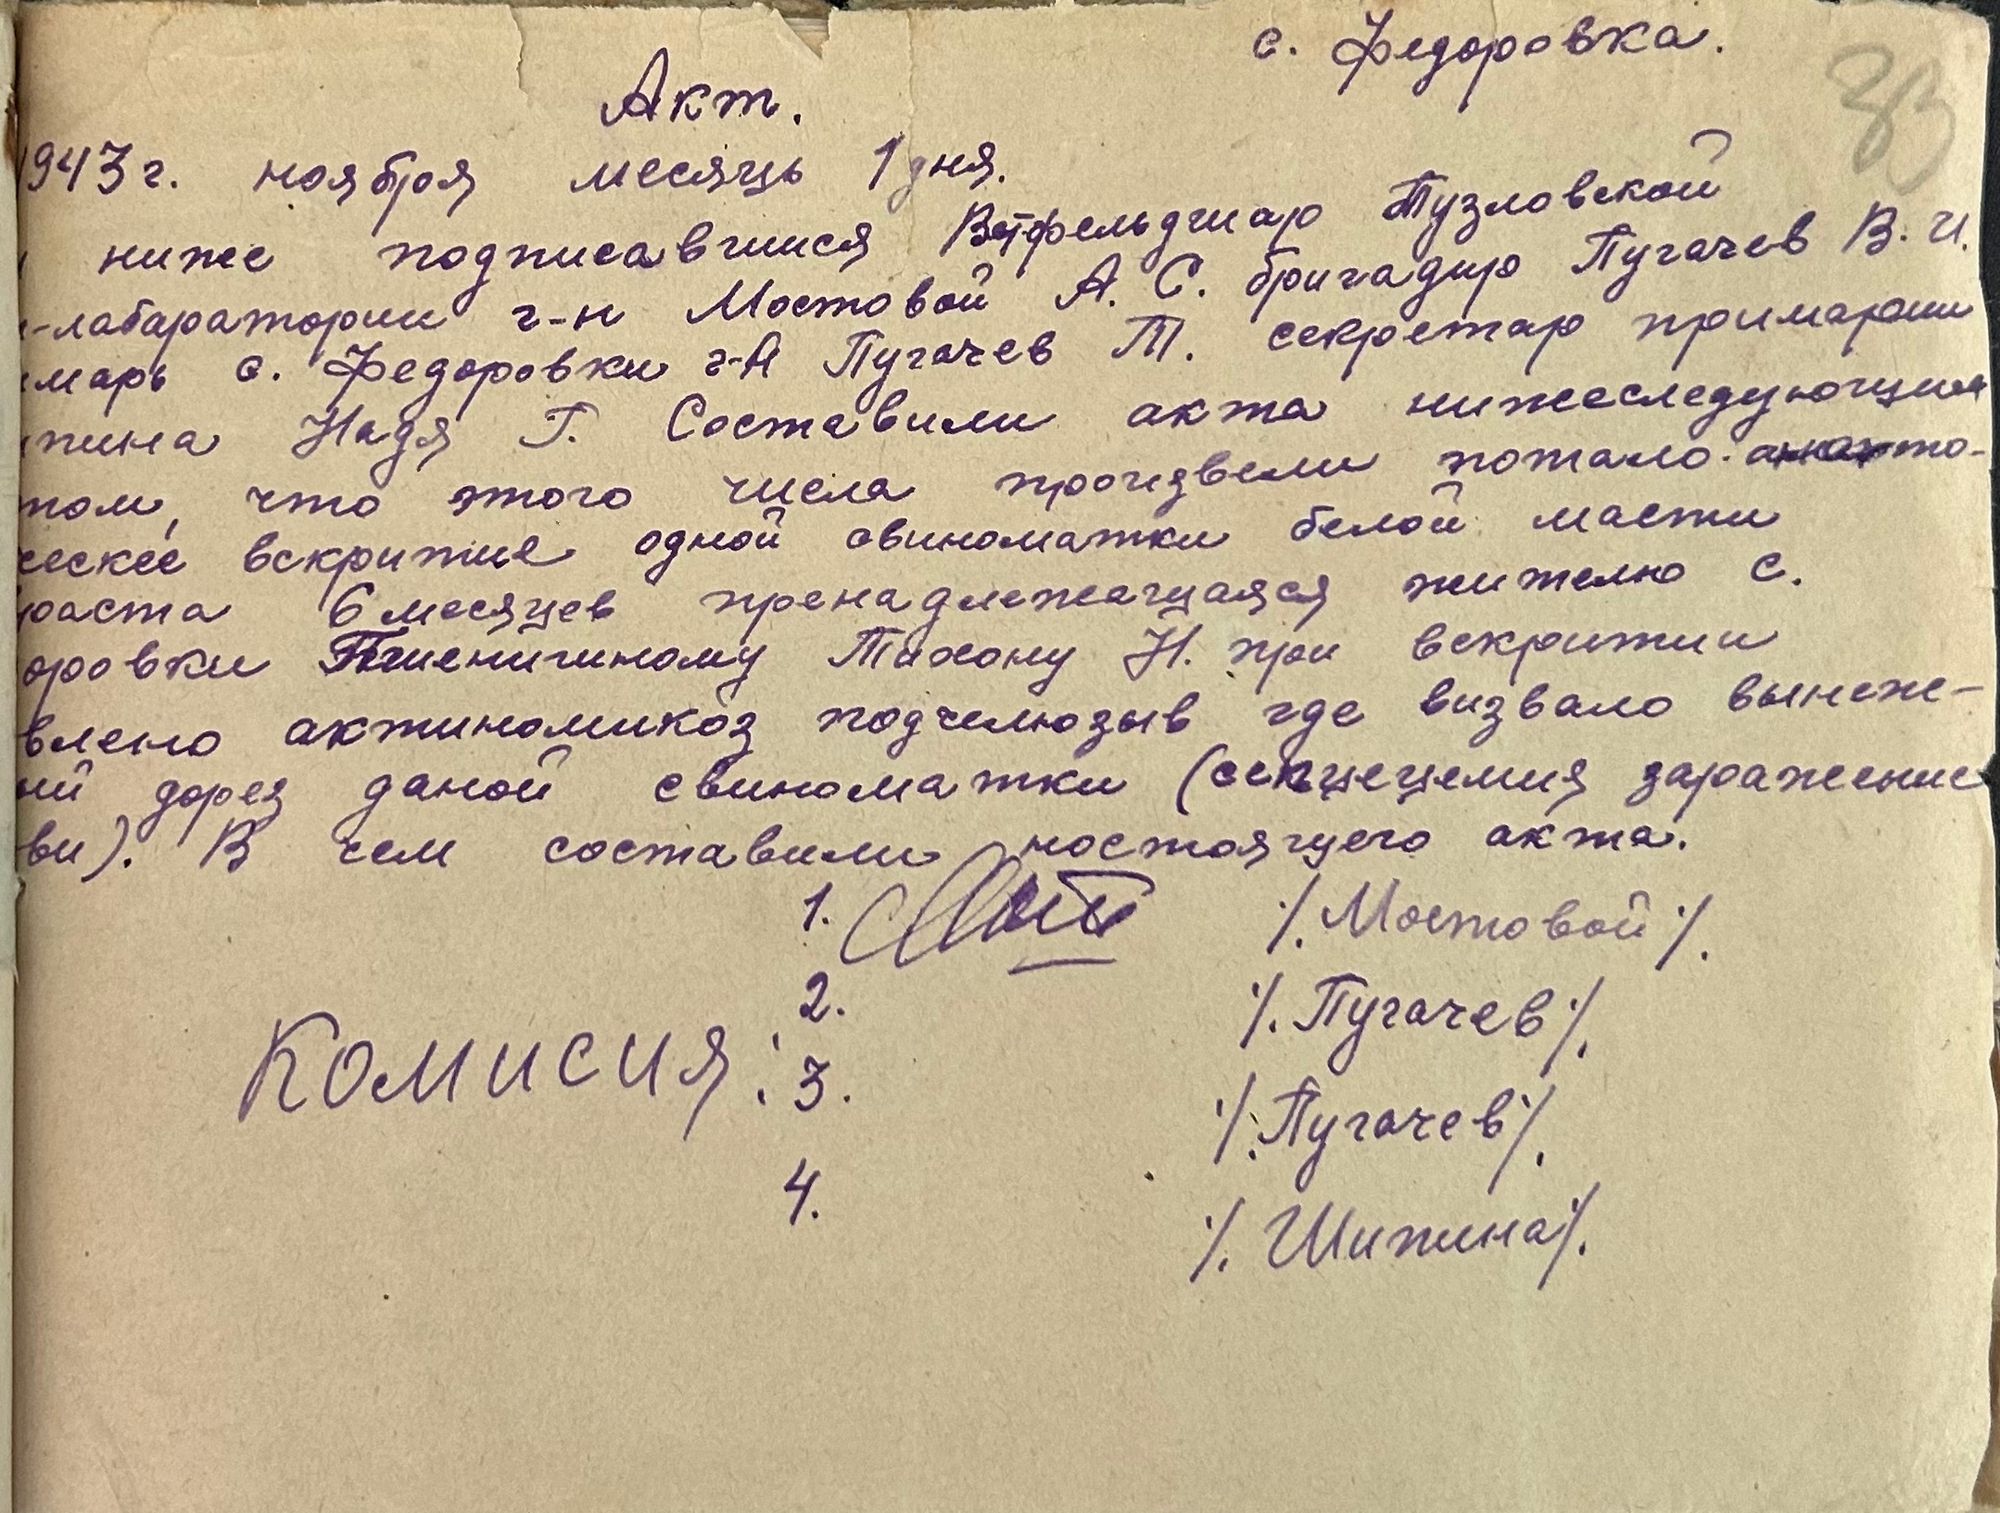 с. Федоровка.
33
Акт.
1943 г. ноября месяць 1 дня.
ниже подписавшися Ветфельдшар Тузловской
-лабаратории г-н Мостовой А. С. бригадир Пугачев В. И.
марь с. Федоровки г-н Пугачев Т. секретар примарии
пина Надя Г. Составили акта нижеследующим
том, что этого числа произвели потало.анато-
ческее вскритие одной свиноматки белой масти
раста 6 месяцев пренадлежащаяся жителю с.
оровки Пшеничиному Тихону Н. при вскритии
влено актиномикоз подчелюзыв где визвало вынеже-
ий дорез даной свиноматки (сепцецемия заражение
ви). В чем составили ностоящего акта.
1. /. Мостовой /.
2. /. Пугачев /.
Комисия:
3. /. Пугачев /.
4. /. Шипина /.